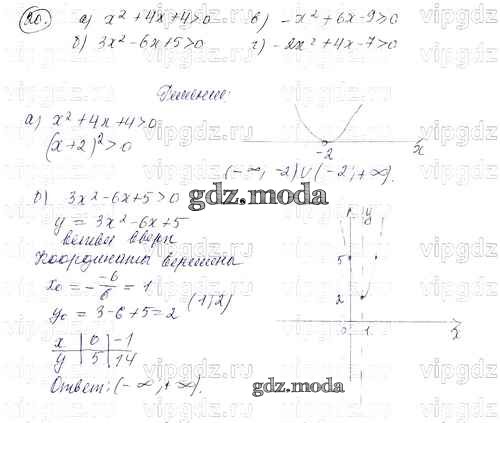 20. а) x² + 4x + 4 > 0 в) -x² + 6x - 9 > 0
б) 3x² - 6x + 5 > 0 г) -2x² + 4x - 7 > 0
Решение:
а) x² + 4x + 4 > 0
(x + 2)² > 0
-2 x
(-∞; -2) ∪ (-2; +∞).
б) 3x² - 6x + 5 > 0
y = 3x² - 6x + 5
ветви вверх
Координаты вершины
x₀ = - -6/6 = 1
y₀ = 3 - 6 + 5 = 2 (1; 2)
x | 0 | -1
y | 5 | 14
Ответ: (-∞; +∞).
y
5
2
0 1 x
gdz.moda
gdz.moda
vipgdz.ru